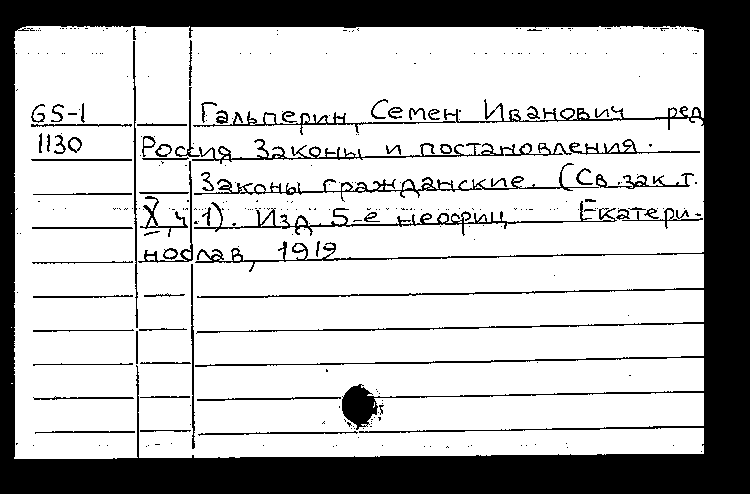 GS-1 Гальперин, Семен Иванович ред
1130 Россия. Законы и постановления.
Законы гражданские. (Св. зак. т.
X, ч.1). Изд 5-е неофиц Екатери-
нослав, 1912